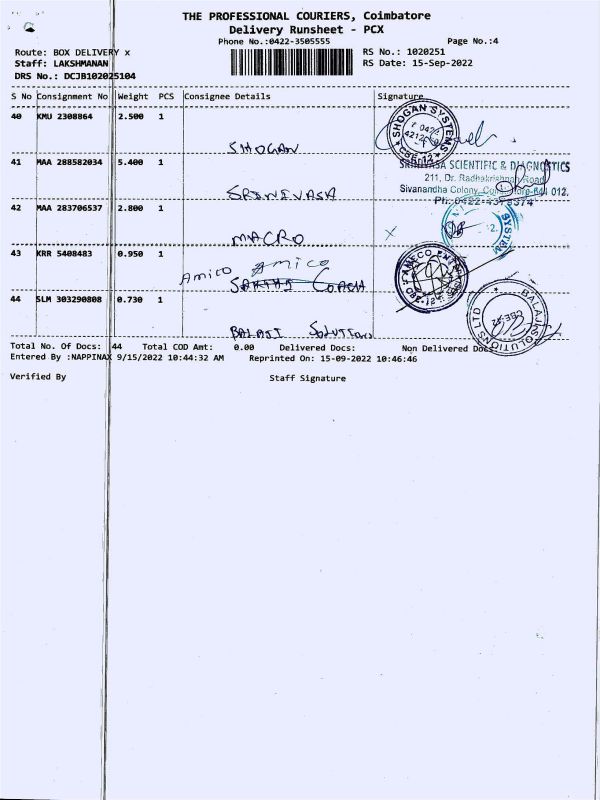 THE PROFESSIONAL COURIERS, Coimbatore
Delivery Runsheet - PCX
Phone No.:0422-3505555 Page No.:4
Route: BOX DELIVERY x RS No.: 1020251
Staff: LAKSHMANAN RS Date: 15-Sep-2022
DRS No.: DCJB102025104
S No Consignment No Weight PCS Consignee Details Signature
40 KMU 2308864 2.500 1
SHOGAN SYSTEMS
SHOGAN
41 MAA 288582034 5.400 1 SRINIVASA SCIENTIFIC & DIAGNOSTICS
211, Dr. Radhakrishnan Road
Sivanandha Colony, 012.
SRINIVASA
Ph: 0422-4375374
42 MAA 283706537 2.800 1
SYSTEM
MACRO X
43 KRR 5408483 0.950 1
Amico Amico
44 SLM 303290808 0.730 1
BALAJI SOLUTIONS LTD
BALAJI Solution
Total No. Of Docs: 44 Total COD Amt: 0.00 Delivered Docs: Non Delivered Docs
Entered By :NAPPINAX 9/15/2022 10:44:32 AM Reprinted On: 15-09-2022 10:46:46
Verified By Staff Signature